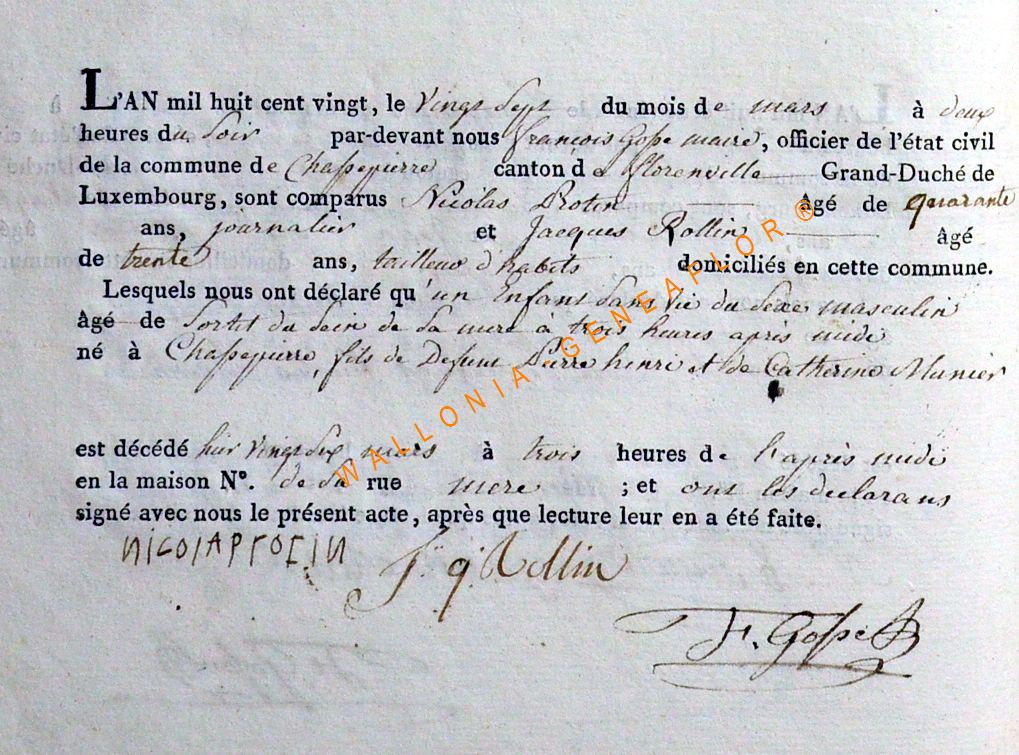 L'AN mil huit cent vingt, le vingt Sept du mois de mars à deux
heures du Soir par-devant nous françois Gosse maire, officier de l'état civil
de la commune de Chassepierre canton de florenville Grand-Duché de
Luxembourg, sont comparus Nicolas Protin âgé de quarante
ans, journalier et Jacques Rollin âgé
de trente ans, tailleur d'habits domiciliés en cette commune.
Lesquels nous ont déclaré qu'un Enfant Sans vie du Sexe masculin
âgé de Sortit du Sein de Sa mere à trois heures après midi
né à Chassepierre, fils de Defunt Pierre henri et de Catherine Munier
est décédé hier vingt Six mars à trois heures de l'après midi
en la maison N°. de Sa rue mere ; et ont les declarans
signé avec nous le présent acte, après que lecture leur en a été faite.
NICOLAPROTIN J. q. Rollin
F. Gosse
WALLONIA GENEAPLOR ®